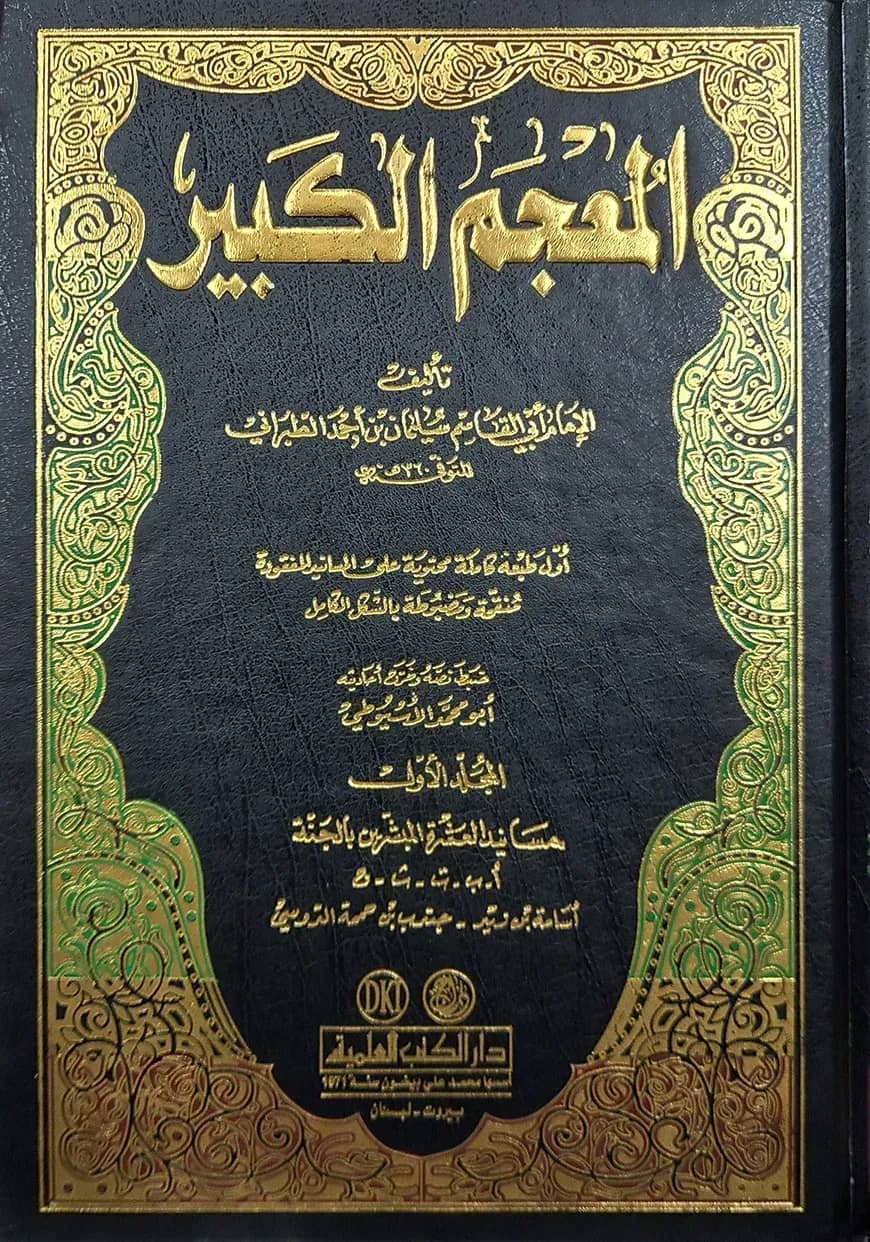 المعجم الكبير
تأليف
الإمام أبي القاسم سليمان بن أحمد الطبراني
المتوفى ٣٦٠ هـ
أول طبعة كاملة محتوية على المسانيد المفقودة
منقحة ومضبوطة بالشكل الكامل
ضبط نصه وخرج أحاديثه
أبو محمد الأسيوطي
المجلد الأول
مسانيد العشرة المبشرين بالجنة
أ - ب - ت - ث - ج
أسامة بن زيد - جندب بن حممة الدوسي
DKI
دار الكتب العلمية
أسسها محمد علي بيضون سنة 1971
بيروت - لبنان